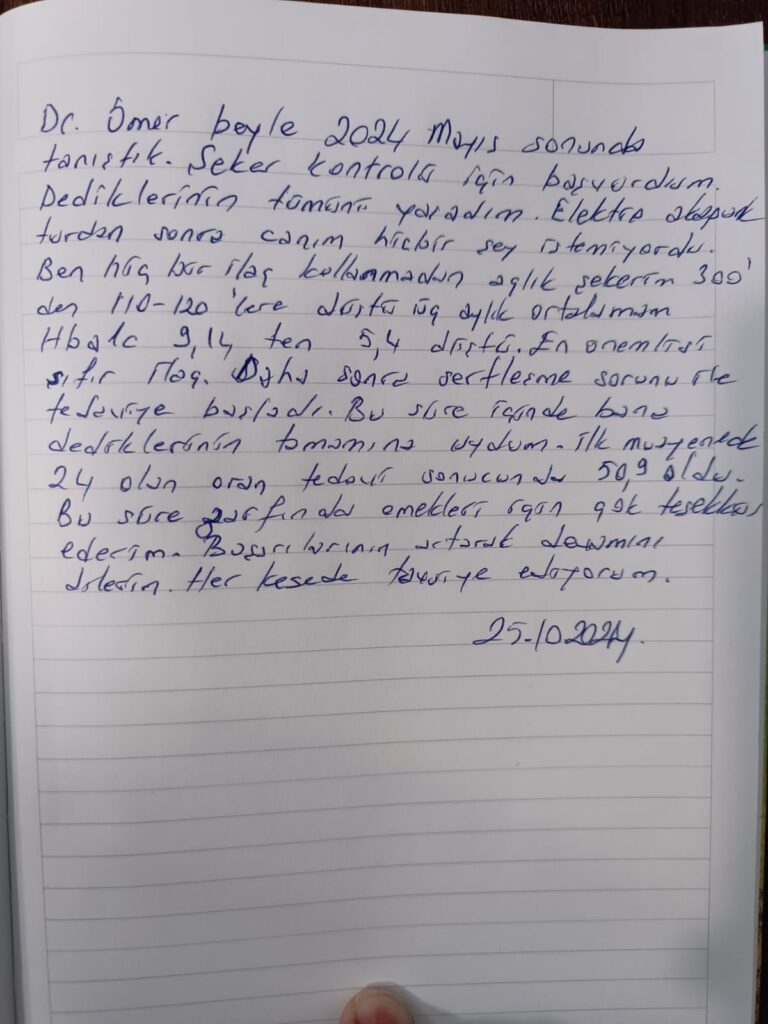 Dr. Ömer beyle 2024 Mayıs sonunda
tanıştık. Şeker kontrolü için başvurdum.
Dediklerinin tümünü yaradım. Elektro akapunk
turdan sonra canım hiçbir şey istemiyordu.
Ben hiç bir ilaç kullanmadan açlık şekerim 300'
den 110-120 'lere düştü üç aylık ortalamam
Hba1c 9,14 ten 5,4 düştü. En önemlisi
sıfır ilaç. Daha sonra sertleşme sorunu ile
tedaviye başladı. Bu süre içinde bana
dediklerinin tamamına uydum. ilk muayenede
24 olan oran tedavi sonucunda 50,9 oldu.
Bu süre zarfında emekleri için çok teşekkür
ederim. Başarılarının artarak devamını
dilerim. Her kesede tavsiye ediyorum.
25.10.2024.